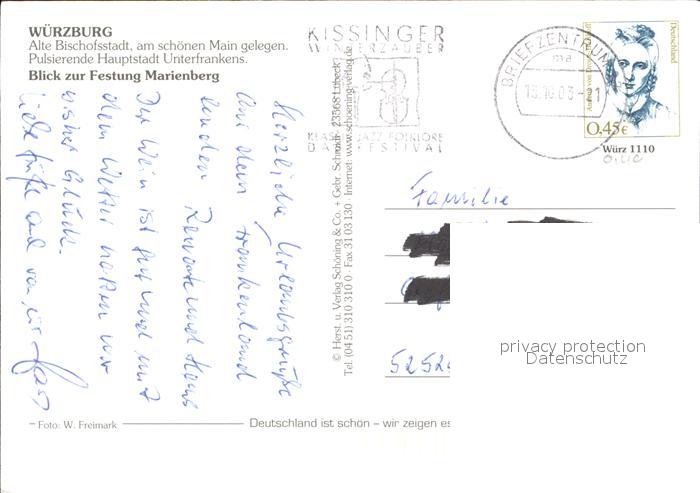 WÜRZBURG
Alte Bischofsstadt, am schönen Main gelegen.
Pulsierende Hauptstadt Unterfrankens.
Blick zur Festung Marienberg
Herzliche Urlaubsgrüße
aus dem Frankenland
senden Renate und Hans
Der Wein ist gut und mit
dem Wetter hatten wir
bisher Glück.
Liebe Grüße
© Herst. u. Verlag Schöning & Co. + Gebr. Schmidt · 23568 Lübeck
Tel. (04 51) 310 310 0 · Fax 31 03 130 · Internet: www.schoening-verlag.de
KISSINGER
WINTERZAUBER
KLASSIK JAZZ FOLKLORE
FESTIVAL
BRIEFZENTRUM
ma
Deutschland
0,45€
Würz 1110
Familie
privacy protection
Datenschutz
Foto: W. Freimark
Deutschland ist schön – wir zeigen es